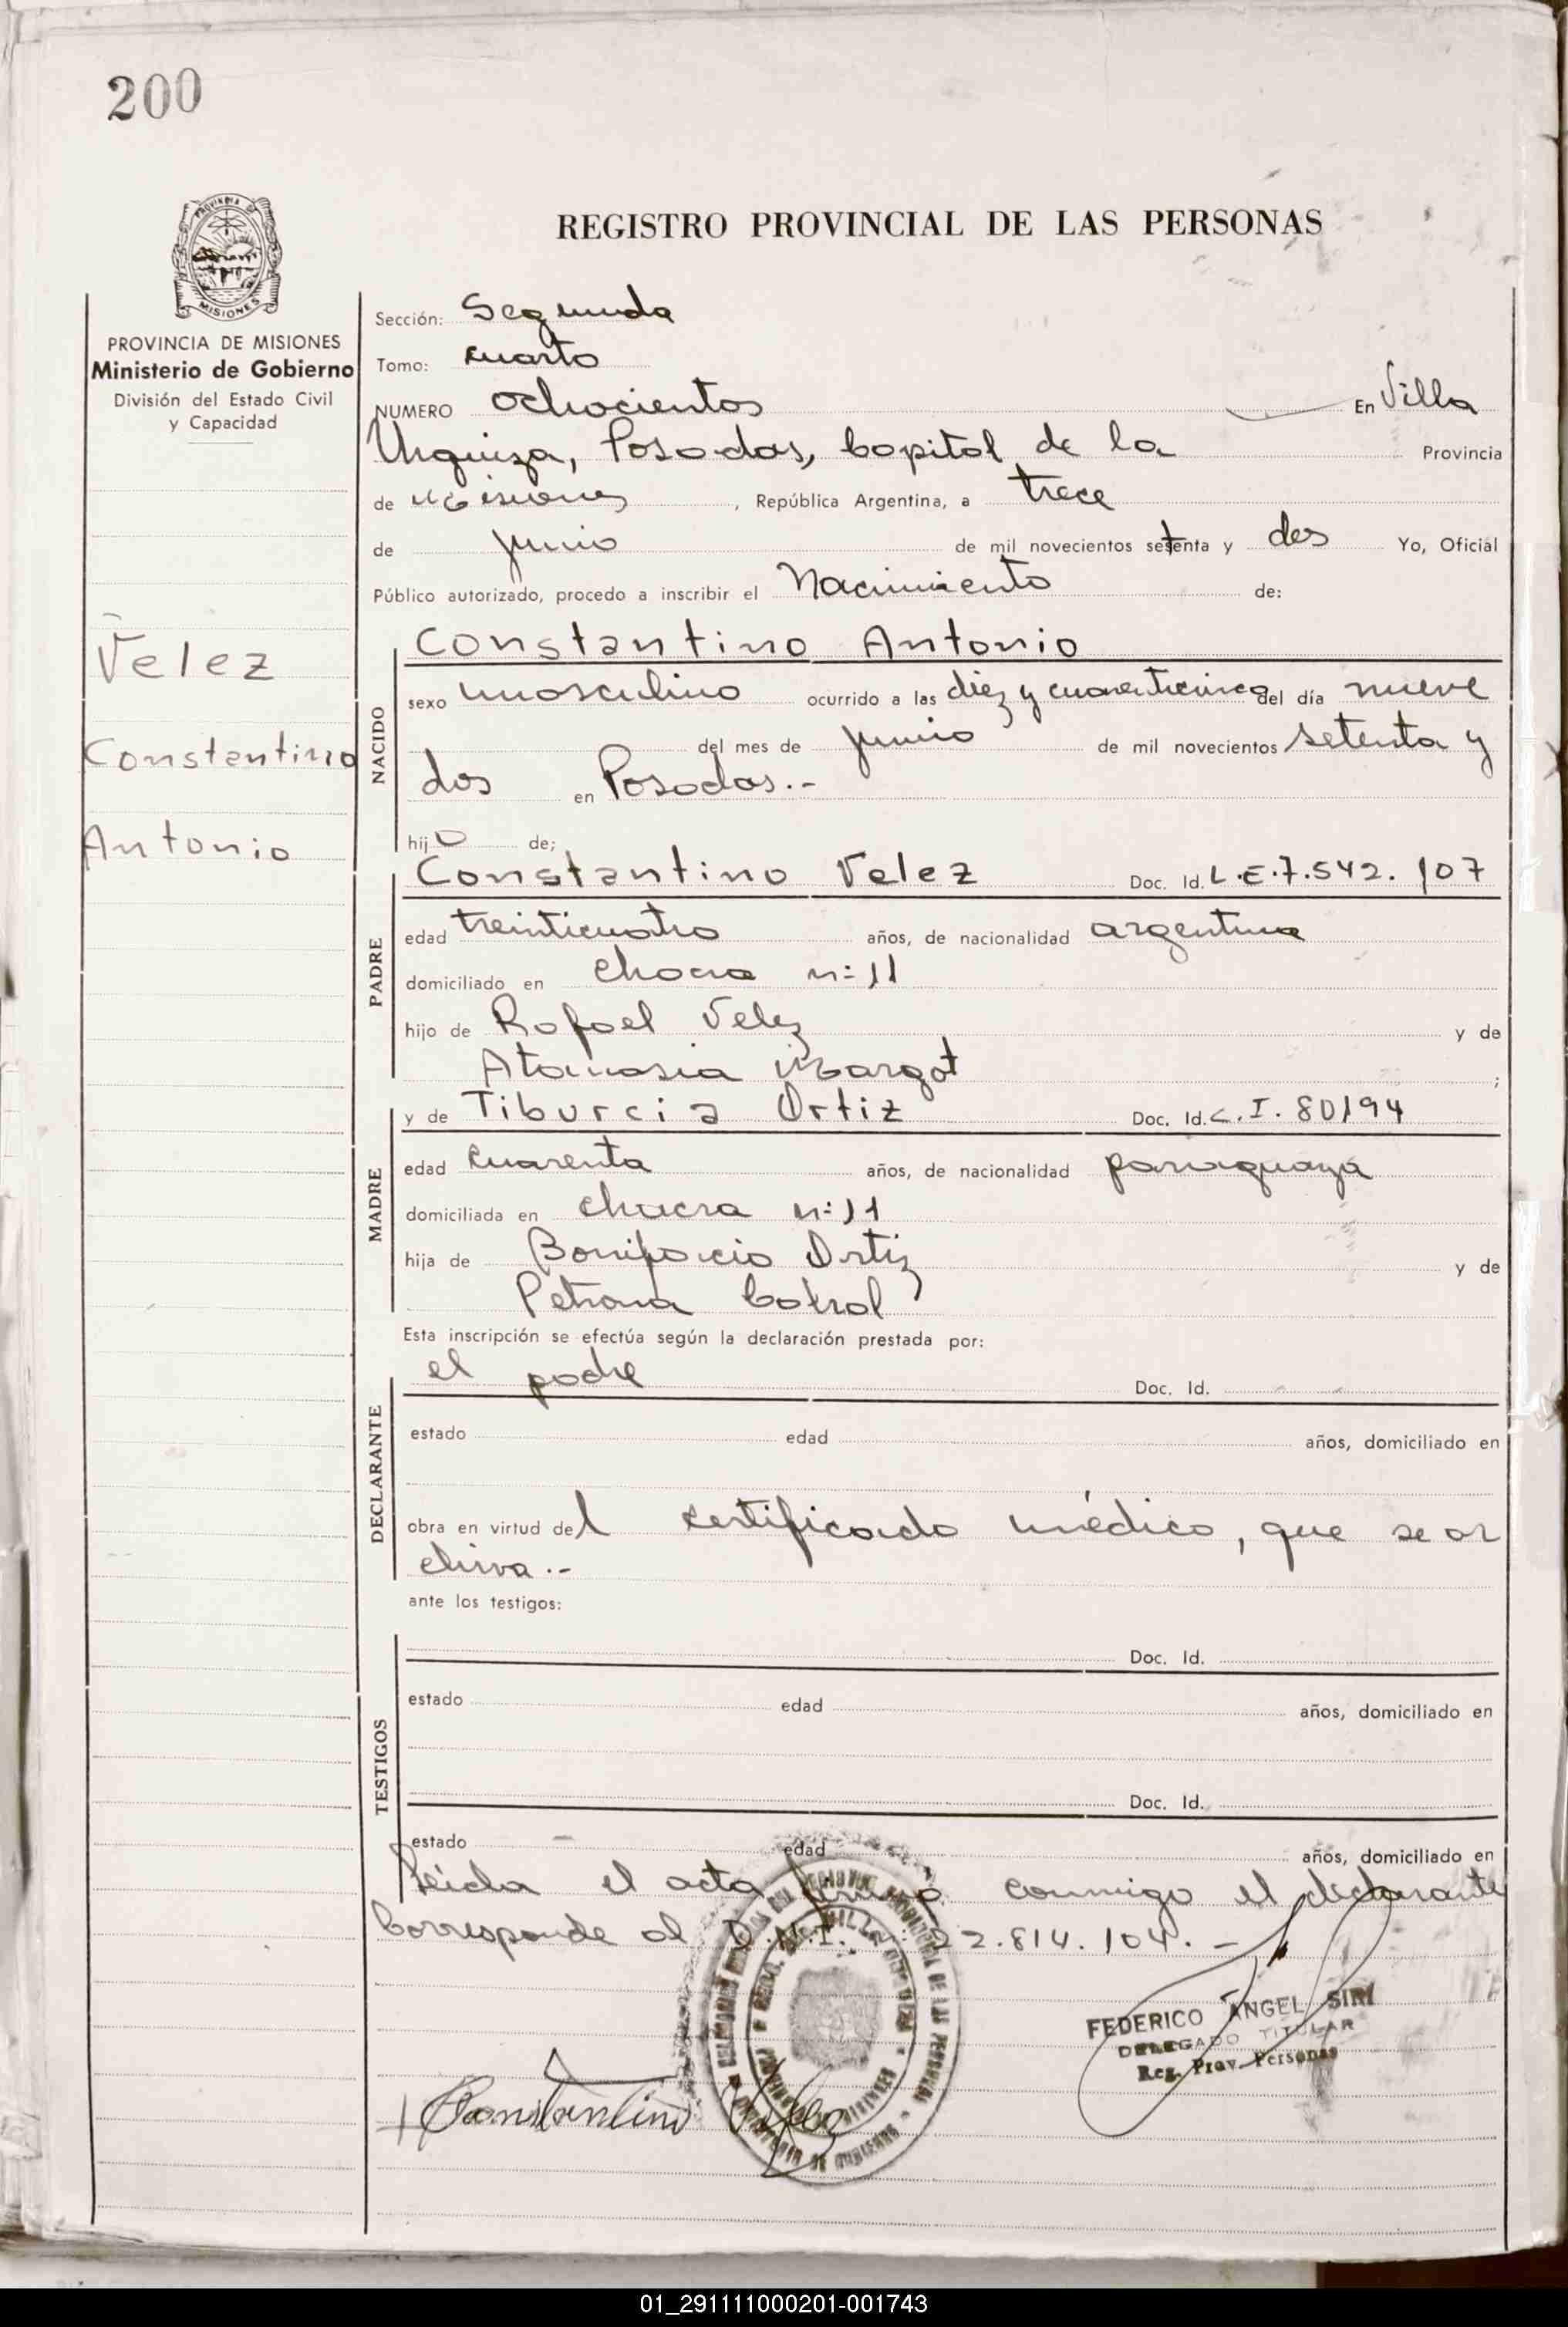 200
PROVINCIA DE
MISIONES
REGISTRO PROVINCIAL DE LAS PERSONAS
PROVINCIA DE MISIONES
Ministerio de Gobierno
División del Estado Civil
y Capacidad
Velez
Constantino
Antonio
Sección: Segunda
Tomo: cuarto
NUMERO ochocientos En Villa
Urquiza, Posadas, Capital de la Provincia
de Misiones, República Argentina, a trece
de junio de mil novecientos setenta y dos Yo, Oficial
Público autorizado, procedo a inscribir el Nacimiento de:
NACIDO
Constantino Antonio
sexo masculino ocurrido a las diez y cuarenticinco del día nueve
del mes de junio de mil novecientos setenta y
dos en Posadas.-
hijo de;
PADRE
Constantino Velez Doc. Id. L.E.7.542.107
edad treinticuatro años, de nacionalidad argentina
domiciliado en chacra n:11
hijo de Rafael Velez y de
Atanasia Margot ;
MADRE
y de Tiburcia Ortiz Doc. Id. C.I. 80194
edad cuarenta años, de nacionalidad paraguaya
domiciliada en chacra n:11
hija de Bonifacio Ortiz y de
Petrona Cabral
Esta inscripción se efectúa según la declaración prestada por:
DECLARANTE
el padre Doc. Id.
estado edad años, domiciliado en
obra en virtud del certificado médico, que se ar
chiva.-
ante los testigos:
TESTIGOS
Doc. Id.
estado edad años, domiciliado en
Doc. Id.
estado edad años, domiciliado en
Leída el acta firma conmigo el declarante
Corresponde al D.N.I. 22.814.104.-
FEDERICO ANGEL SIRI
DELEGADO TITULAR
Reg. Prov. Personas
Constantino Velez
01_291111000201-001743